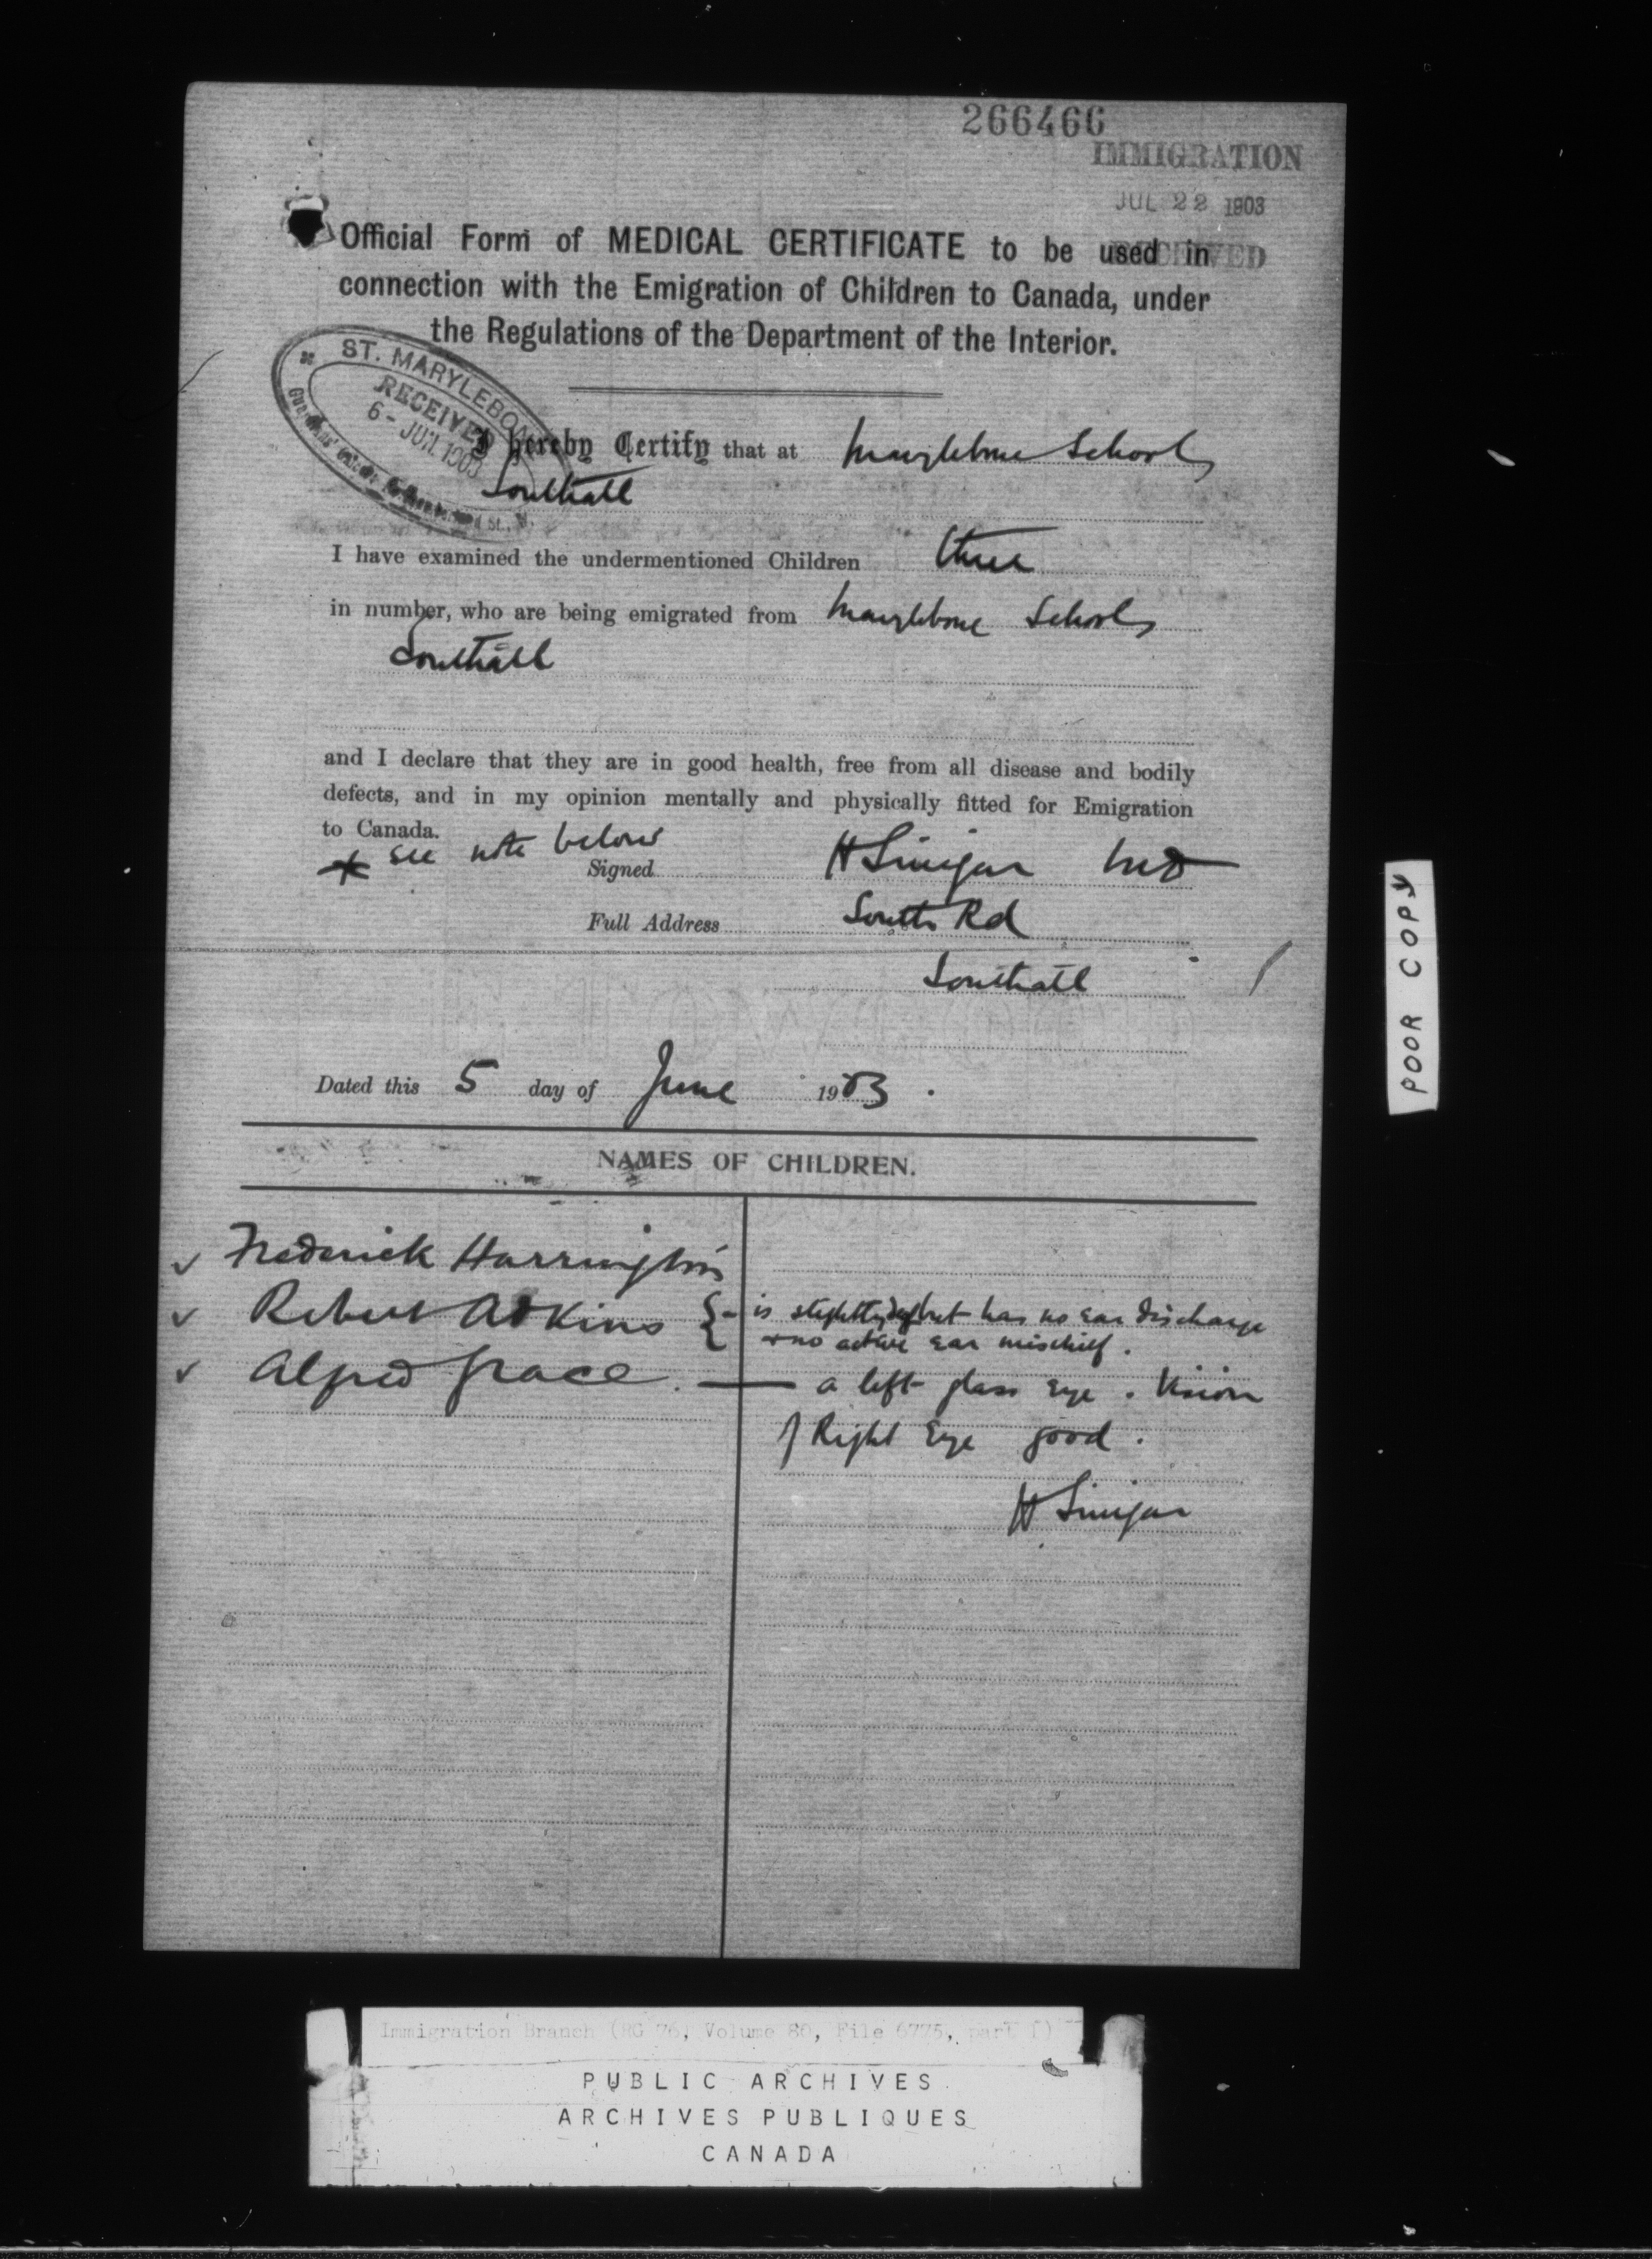 266466
IMMIGRATION
JUL 22 1903
RECEIVED
Official Form of MEDICAL CERTIFICATE to be used in
connection with the Emigration of Children to Canada, under
the Regulations of the Department of the Interior.
ST. MARYLEBONE
RECEIVED
6 - JUN. 1903
I hereby Certify that at Marylebone Schools
Southall
I have examined the undermentioned Children three
in number, who are being emigrated from Marylebone Schools
Southall
and I declare that they are in good health, free from all disease and bodily
defects, and in my opinion mentally and physically fitted for Emigration
to Canada.
* see note below
Signed H Sinigar MD
Full Address South Rd
Southall
Dated this 5 day of June 1903.
NAMES OF CHILDREN.
✓ Frederick Harrington
✓ Robert Adkins { - is slightly deaf but has no ear discharge
+ no active ear mischief.
✓ Alfred Grace. — a left glass eye. Vision
of Right Eye good.
H Sinigar
POOR COPY
Immigration Branch (RG 76, Volume 80, File 6775, part 1)
PUBLIC ARCHIVES
ARCHIVES PUBLIQUES
CANADA